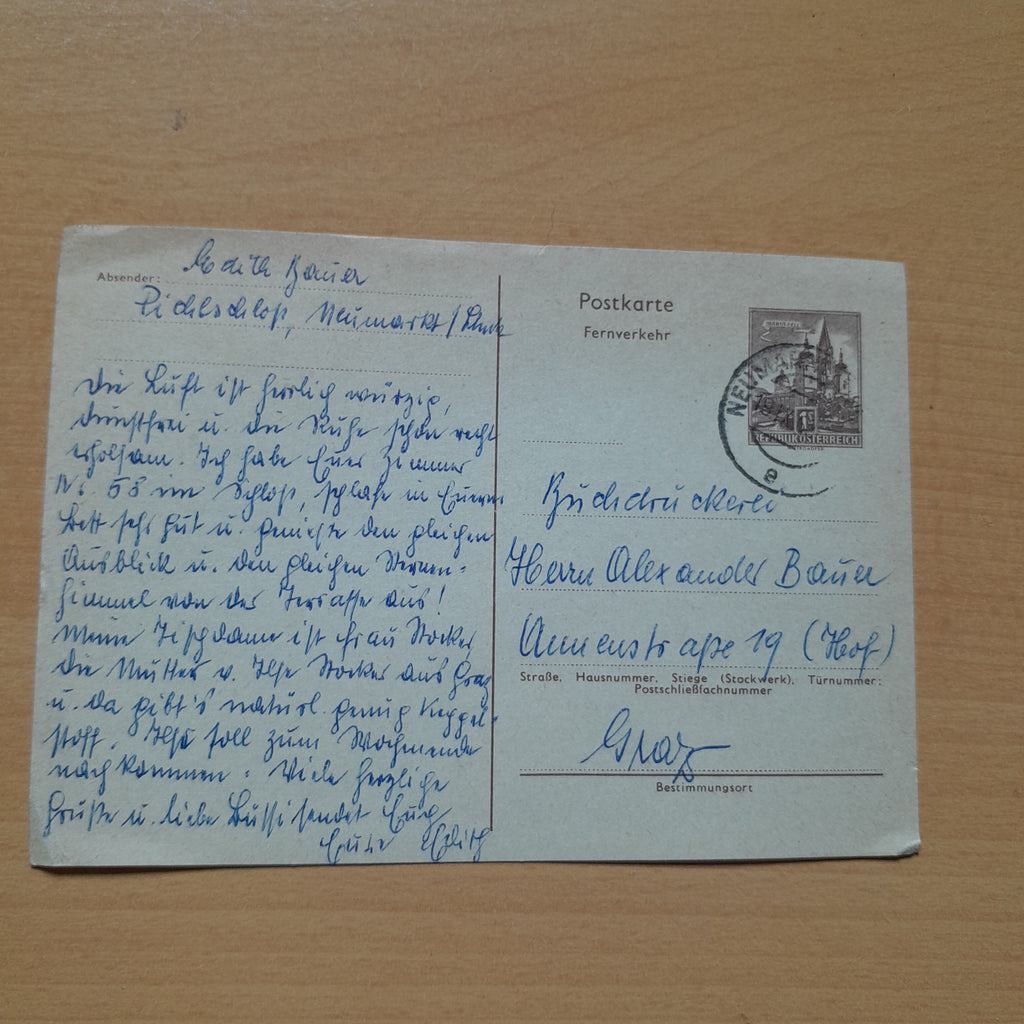 Absender: Edith Bauer
Pichlschloß, Neumarkt/
Die Luft ist herrlich würzig,
dunstfrei u. die Ruhe schon recht
erholsam. Ich habe Euer Zimmer
Nr. 58 im Schloß, schlafe in Eurem
Bett sehr gut u. genieße den gleichen
Ausblick u. den gleichen Sternen-
himmel von der Terrasse aus!
Meine Tischdame ist Frau Stocker,
die Mutter v. Ilse Stocker aus Graz
u. da gibt's natürl. genug Keppel-
stoff. Ilse soll zum Wochenende
nachkommen. Viele herzliche
Grüße u. liebe Bussi sendet Euch
Eure Edith
Postkarte
Fernverkehr
MARIAZELL
REPUBLIK ÖSTERREICH
NEUMARKT
e
Buchdruckerei
Herrn Alexander Bauer
Annenstraße 19 (Hof)
Straße, Hausnummer, Stiege (Stockwerk), Türnummer;
Postschließfachnummer
Graz
Bestimmungsort